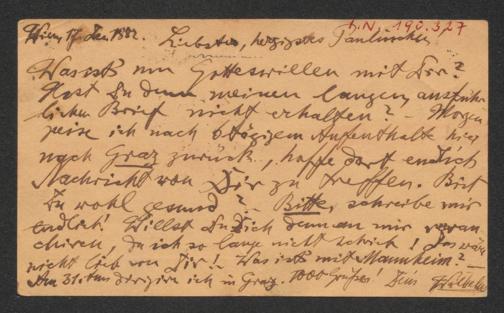 I.N. 190.327
Wien, 17. Dez. 1882. Liebstes, herzigstes Paulinchen
Was ist um Gotteswillen mit Dir?
Hast Du denn meinen langen, ausführ-
lichen Brief nicht erhalten? – Morgen
reise ich nach 6tägigem Aufenthalte hier
nach Graz zurück, hoffe dort endlich
Nachricht von Dir zu treffen. Bist
Du wohl gesund? – Bitte, schreibe mir
endlich! Willst Du Dich denn an mir revan
chiren, da ich so lange nicht schrieb! Das wäre
nicht lieb von Dir! Was ist mit Mannheim? –
Am 31. dirigire ich in Graz. 1000 Grüße! Dein